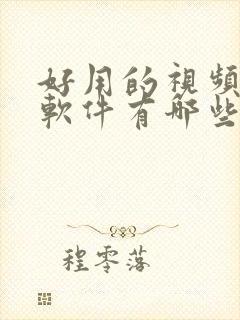 好用的視頻
軟件有哪些
程零落